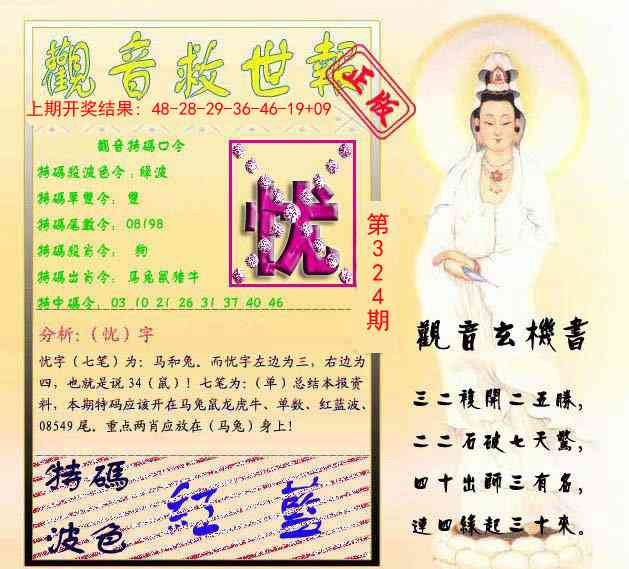 觀音救世報
正版
上期开奖结果：48-28-29-36-46-19+09
觀音特碼口令
特碼段波色令：綠波
特碼單雙令： 雙
特碼尾數令：08198
特碼段肖令： 狗
特碼出肖令：马兔鼠猪牛
特中碼令：03 10 21 26 31 37 40 46
忧
第324期
分析：（忧）字
忧字（七笔）为：马和兔。而忧字左边为三，右边为
四，也就是说 34（鼠）！七笔为：（单）总结本报资
料，本期特码应该开在马兔鼠龙虎牛、单数、红蓝波、
08549 尾。重点两肖应放在（马兔）身上！
特碼
波色
紅 藍
觀音玄機書
三二複開二五勝，
二二石破七天驚，
四十出師三有名，
連四緣起三十來。